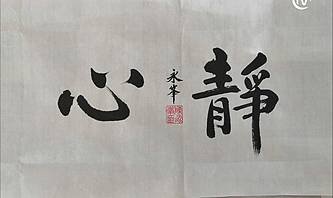 靜心
永峯